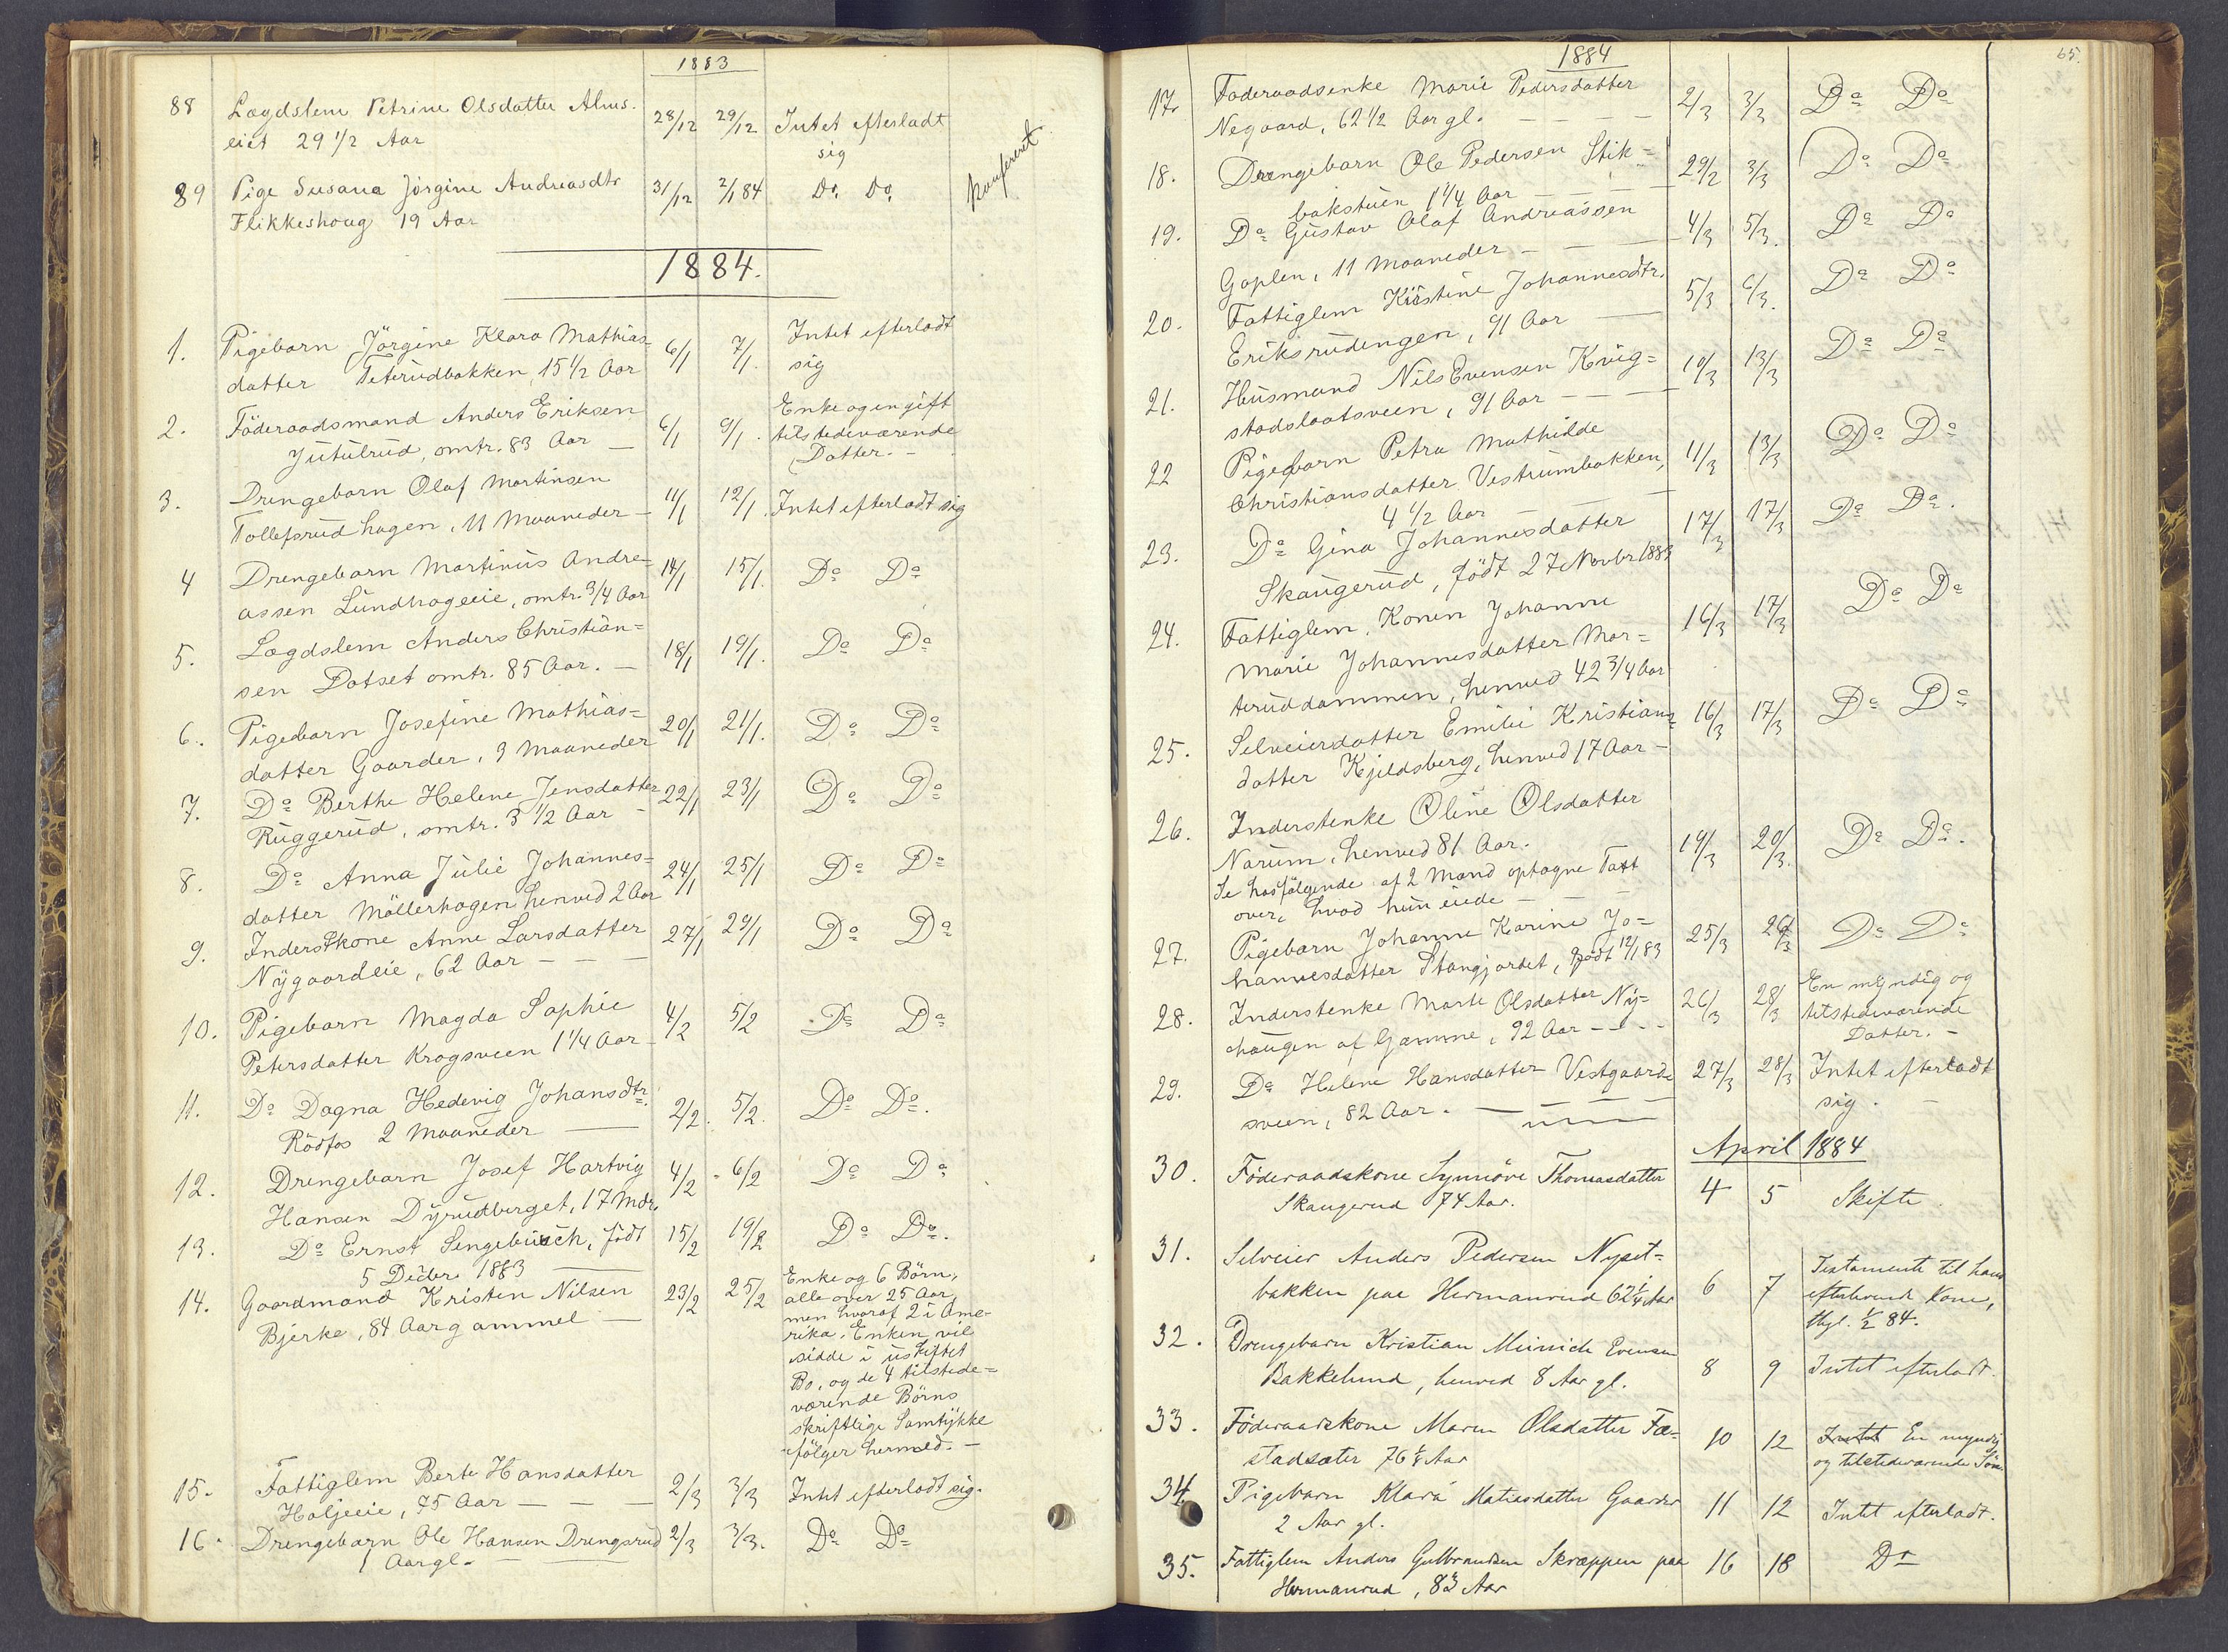 1883
88 Lægdslem Petrine Olsdatter Alms-
eiet 29 1/2 Aar 28/12 29/12 Intet efterladt
sig
89 Pige Susana Jörgine Andreasdtr 31/12 2/1 84 Do. Do.
Flikkeshoug 19 Aar
konfereret
1884.
1. Pigebarn Jörgine Klara Mathias-
datter Teterudbakken, 15 1/2 Aar 6/1 7/1. Intet efterladt
sig
2. Föderaadsmand Anders Eriksen
Jutulrud, omtr. 83 Aar — 6/1 9/1. Enke og en gift
tilstedeværende
Datter. -
3. Drengebarn Olaf Martinsen
Tollefsrudhagen, 11 Maaneder — 11/1 12/1. Intet efterladt sig
4 Drengebarn Martinus Andre-
assen Lundhageeie, omtr. 3/4 Aar 14/1 15/1. Do Do
5. Lægdslem Anders Christian=
sen Dotset omtr. 85 Aar. — 18/1 19/1. Do Do
6. Pigebarn Josefine Mathias=
datter Gaarder, 3 Maaneder 20/1 21/1. Do Do
7. Do Berthe Helene Jensdatter
Ruggerud, omtr. 3 1/2 Aar - 22/1 23/1 Do Do
8. Do Anna Julie Johannes=
datter Möllerhagen henved 2 Aar 24/1 25/1 Do Do
9. Inderstkone Anne Larsdatter
Nygaardeie, 62 Aar — — — 27/1 29/1 Do Do
10. Pigebarn Magda Sophie
Petersdatter Krogsveen 1 1/4 Aar - 4/2 5/2 Do Do
11. Do Dagna Hedevig Johansdtr.
Rödfos 2 Maaneder — 2/2. 5/2. Do Do.
12. Drengebarn Josef Hartvig
Hansen Dyrudberget, 17 Mdr. 4/2 - 6/2 Do Do
13. Do Ernst Sengebusch, födt
5 Decbr. 1883 — 15/2 19/2 Do Do.
14. Gaardmand Kristen Nilsen
Bjerke, 84 Aar gammel — 23/2 25/2 Enke og 6 Börn,
alle over 25 Aar,
men hvoraf 2 i Ame-
rika. Enken vil
sidde i uskiftet
Bo, og de 4 tilstede=
værende Börns
skriftlige Samtykke
fölger hermed. —
15. Fattiglem Berte Hansdatter
Holjeeie, 75 Aar — — — 2/3 3/3 Intet efterladt sig.
16. Drengebarn Ole Hansen Drengsrud
1 Aar gl. — 2/3 3/3. Do Do
65.
1884
17. Föderaadsenke Marie Pedersdatter
Negaard, 62 1/2 Aar gl. — — — 2/3 3/3 Do Do
18. Drengebarn Ole Pedersen Stik=
bakstuen 1 1/4 Aar — — — 29/2 3/3 Do Do
19. Do Gustav Olaf Andreassen
Goplen, 11 Maaneder — — — 4/3 5/3. Do Do
20. Fattiglem Kirstine Johannesdtr.
Eriksrudengen, 91 Aar — 5/3 6/3. Do Do
21. Husmand Nils Evensen Kvig=
stadslaatsveen, 91 Aar — — — 10/3 13/3 Do Do
22 Pigebarn Petra Mathilde
Christiansdatter Vestrumbakken,
4 1/2 Aar — — 11/3 13/3 Do Do
23. Do Gina Johannesdatter
Skaugerud, födt 27 Novbr 1883 17/3 17/3 Do Do.
24. Fattiglem, Konen Johanne
Marie Johannesdatter Mor=
teruddammen, henved 42 3/4 Aar 16/3 17/3 Do Do
25. Selveierdatter Emilie Kristians-
datter Kjeldsberg, henved 17 Aar — 16/3 17/3 Do Do
26. Inderstenke Oline Olsdatter
Narum, henved 81 Aar.
Se hosfölgende af 2 Mand optagne Taxt
over, hvad hun eiede — — — 19/3 20/3. Do Do.
27. Pigebarn Johanne Karine Jo=
hannesdatter Stangjordet, födt 12/1 83 25/3 26/3 Do Do
28. Inderstenke Marte Olsdatter Ny=
haugen af Gamme, 92 Aar - - - - 26/3 28/3 En myndig og
tilstedeværende
Datter. —
29. Do Helene Hansdatter Vestgaards
sveen, 82 Aar. — — — — 27/3 28/3 Intet efterladt
sig. —
April 1884
30. Föderaadskone Synnöve Thomasdatter
Skaugerud 74 Aar. 4 5 Skifte
31. Selveier Anders Pedersen Nyset-
bakken paa Hermanrud 62 1/4 Aar 6 7 Testamente til hans
efterlevende Kone,
thgl. 1/2 84.
32. Drengebarn Kristian Meinich Evensen
Bakkelund, henved 8 Aar gl. 8 9 Intet efterladt.
33. Föderaadskone Maren Olsdatter Fæ-
stadsæter 76 1/2 Aar 10 12 Intet En myndig
og tilstedeværende Sön.
34. Pigebarn Klara Matiasdatter Gaarder
2 Aar gl. 11 12 Intet efterladt.
35. Fattiglem Anders Gulbrandsen Skræppen paa
Hermanrud, 83 Aar 16 18 Do